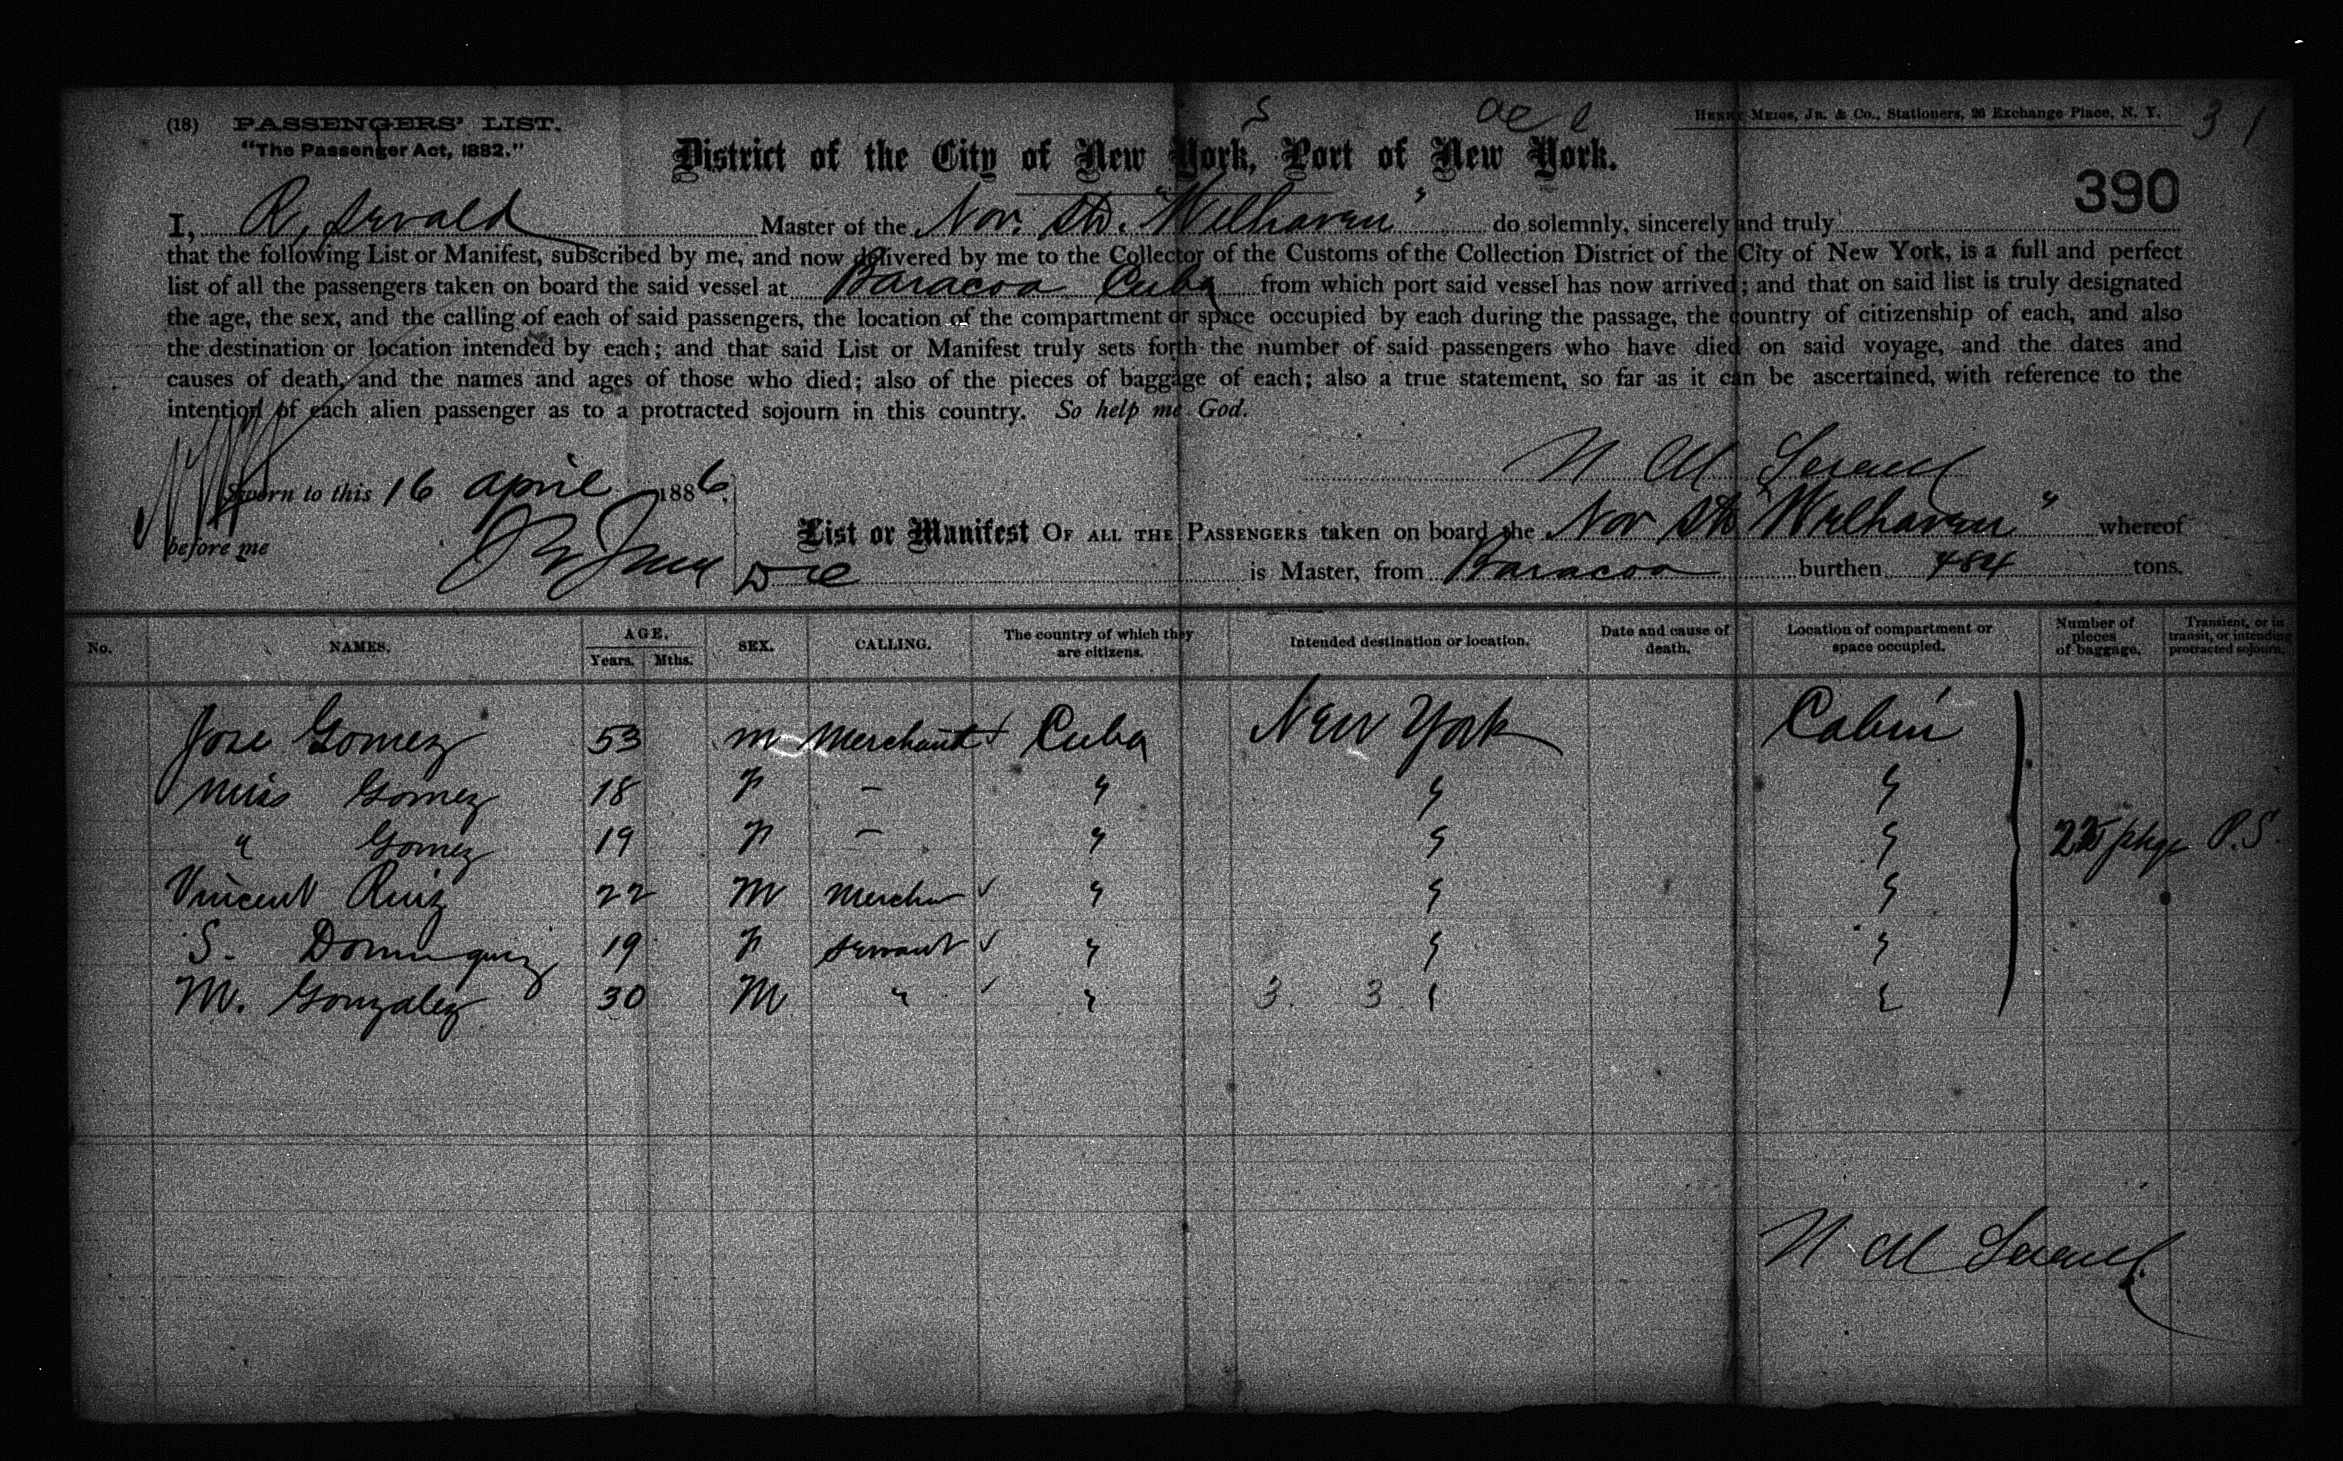 S ae l
HENRY MEIGS, JR. & CO., Stationers, 26 Exchange Place, N. Y. 31
(18) PASSENGERS' LIST.
"The Passenger Act, 1882."
District of the City of New York, Port of New York.
390
I, R. Servald Master of the Nor. Str. "Welhaven" do solemnly, sincerely and truly
that the following List or Manifest, subscribed by me, and now delivered by me to the Collector of the Customs of the Collection District of the City of New York, is a full and perfect
list of all the passengers taken on board the said vessel at Baracoa Cuba from which port said vessel has now arrived; and that on said list is truly designated
the age, the sex, and the calling of each of said passengers, the location of the compartment or space occupied by each during the passage, the country of citizenship of each, and also
the destination or location intended by each; and that said List or Manifest truly sets forth the number of said passengers who have died on said voyage, and the dates and
causes of death, and the names and ages of those who died; also of the pieces of baggage of each; also a true statement, so far as it can be ascertained, with reference to the
intention of each alien passenger as to a protracted sojourn in this country. So help me God.
Sworn to this 16 April 1886.
before me
List or Manifest OF ALL THE PASSENGERS taken on board the Nor Str "Welhaven" whereof
is Master, from Baracoa burthen 484 tons.
No. NAMES. AGE. Years. Mths. SEX. CALLING. The country of which they are citizens. Intended destination or location. Date and cause of death. Location of compartment or space occupied. Number of pieces of baggage. Transient, or in transit, or intending protracted sojourn.
Jose Gomez 53 M Merchant Cuba New York Cabin
Miss Gomez 18 F — " " "
" Gomez 19 F — " " " pkge P.S.
Vincent Ruiz 22 M Merchn ✓ " " "
S. Dominguez 19 F Servant ✓ " " "
M. Gonzalez 30 M " ✓ " 3. 3 " "